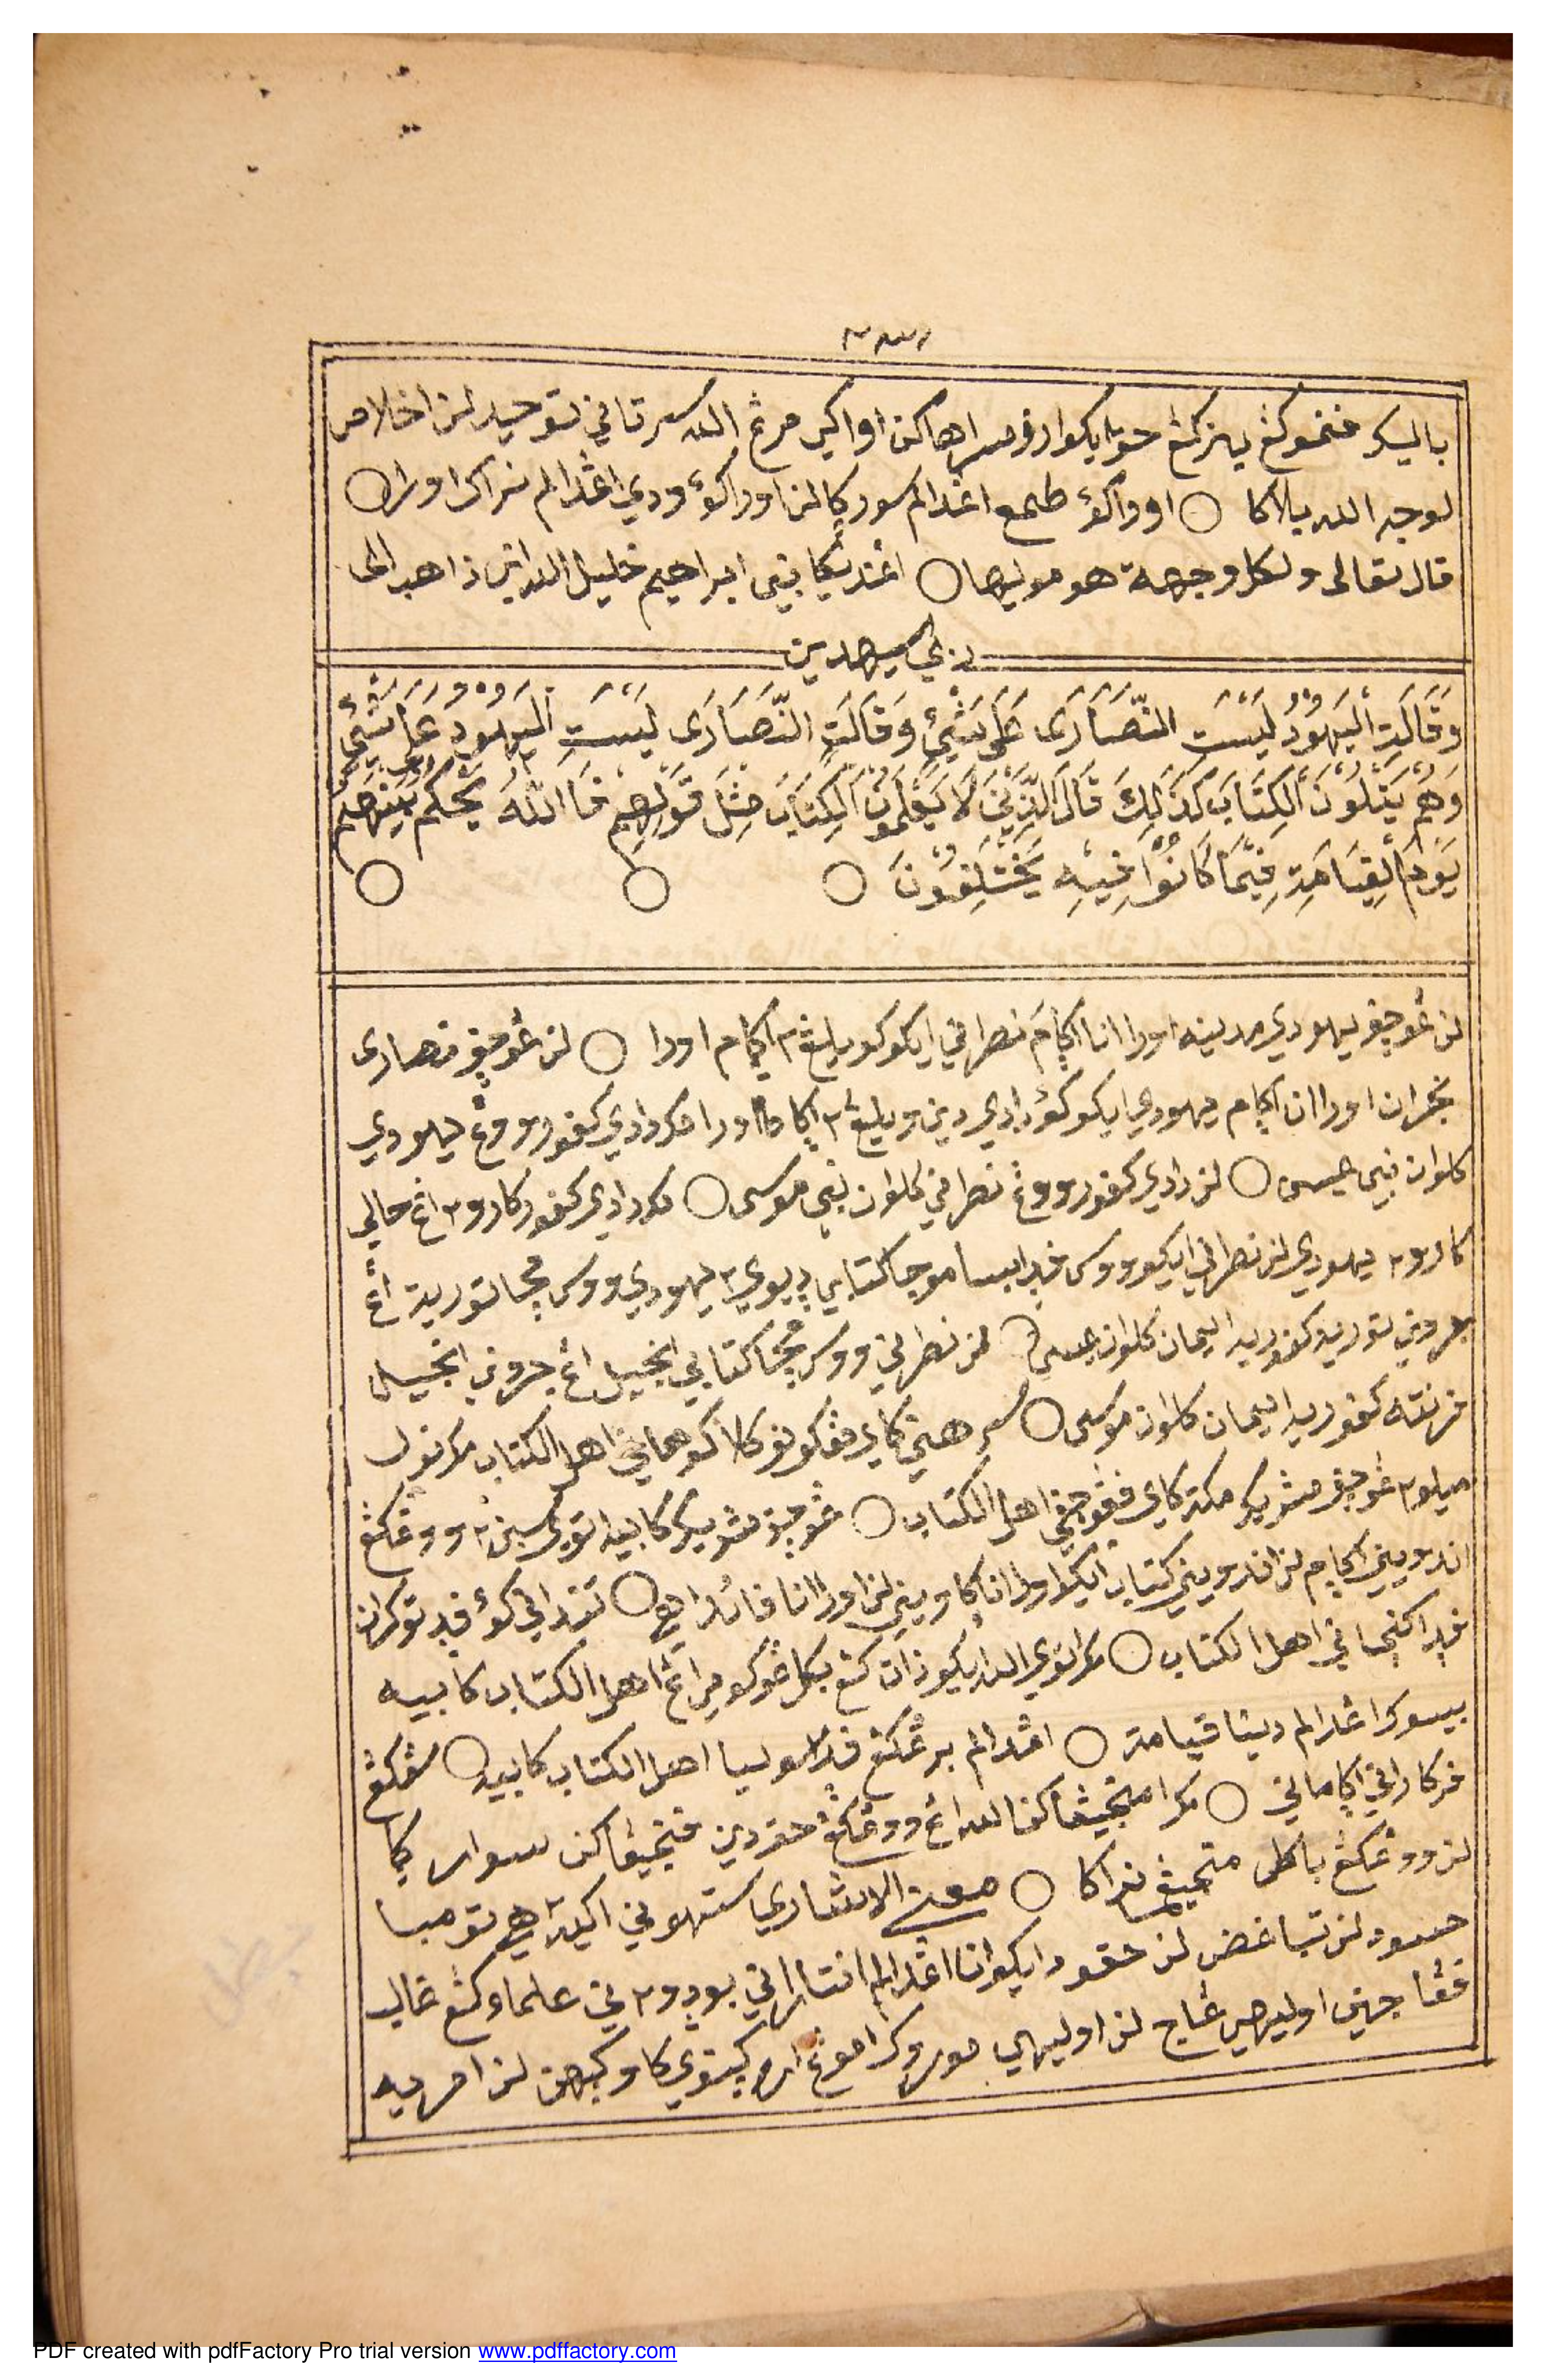 باليكر فنخوكغ يين كمڠ حويايكوا روفسراهاكن اواكي مرڠ الله سرتاني توحيد لن اخلاص
لوجه الله بلاكا ○ اوواكؤ طمع اغدالم سوركا لن اوراكؤ ودي اغدالم نراكا اورا ○
قال تعالى ولكل وجهة هو موليها ○ اغنديكا نبي ابراهيم خليل الله اني ذاهب الى
ربي سيهدين
وَقَالَتِ الْيَهُودُ لَيْسَتِ النَّصَارَى عَلَى شَيْئٍ وَقَالَتِ النَّصَارَى لَيْسَتِ الْيَهُودُ عَلَى شَيْئٍ
وَهُمْ يَتْلُوْنَ الْكِتَابَ كَذَلِكَ قَالَ الَّذِيْنَ لَا يَعْلَمُوْنَ الْكِتَابَ مِثْلَ قَوْلِهِمْ فَاللّٰهُ يَحْكُمُ بَيْنَهُمْ
يَوْمَ الْقِيَامَةِ فِيْمَا كَانُوْا فِيْهِ يَخْتَلِفُوْنَ ○ ○ ○
لن غوچف يهودي مدينه اورا انا اكام نصراني ايكو كويلغ٢ اكام اورا ○ لن غوچف نصارى
نجران اورا ان اكام يهودي ايكو كؤ دادي دين ويلغ٢ اكاما اورا مك دادي كفور ووغ يهودي
كلوان نبي عيسى ○ لن دادي كفور ووغ نصراني كلوان نبي موسى ○ مك دادي كفور كارو٢ اڠ حالي
كارو٢ يهودي لن نصراني ايكو ووس فدا بيسا موجا كتابي ديوي٢ يهودي ووس مچا تورية اڠ
جروني تورية كفوريه ايمان كلوان عيسى ○ لن نصراني ووس مچا كتابي انجيل اڠ جروني انجيل
فرنته كفوريه ايمان كلوان موسى ○ سرهني كاي فڠكونوكلاكوهاني اهل الكتاب مك نولي
ميلو٢ غوچف مشريك مكة كاي فڠوچفي اهل الكتاب ○ غوچف مشريك كابيه توي سبن٢ ووغكڠ
اندويني اكام لن اندويني كتاب ايكو اورا انا كاويني لن اورا انا فائداهي ○ تنداني كؤ فد توكران
فد اكنجاني اهل الكتاب ○ مك اتوي الله ايكو ذات كڠ بكل غوكومي اڠ اهل الكتاب كابيه
بيسوك اغدالم دينا قيامة ○ اغدالم برغكڠ فد سوليا اهل الكتاب كابيه ○ سڠكڠ
فركاراني اكاماني ○ مك امنجيڠاكن الله اڠ ووغكڠ حق دين فنجيڠاكن سواركا
لن ووغكڠ باطل منجيڠ نراكا ○ معنى الاشاري ستهوني اكيه٢ هي تومبا
حسود لن تباغض لن حقود ايكو انا اغدالم انتاراني بودو٢ ني علما وكڠ غالب
فڠاجين اوليهي غاج لن اوليهي موروك اموڠ ارف كينوي كاوكيهن لن امريه